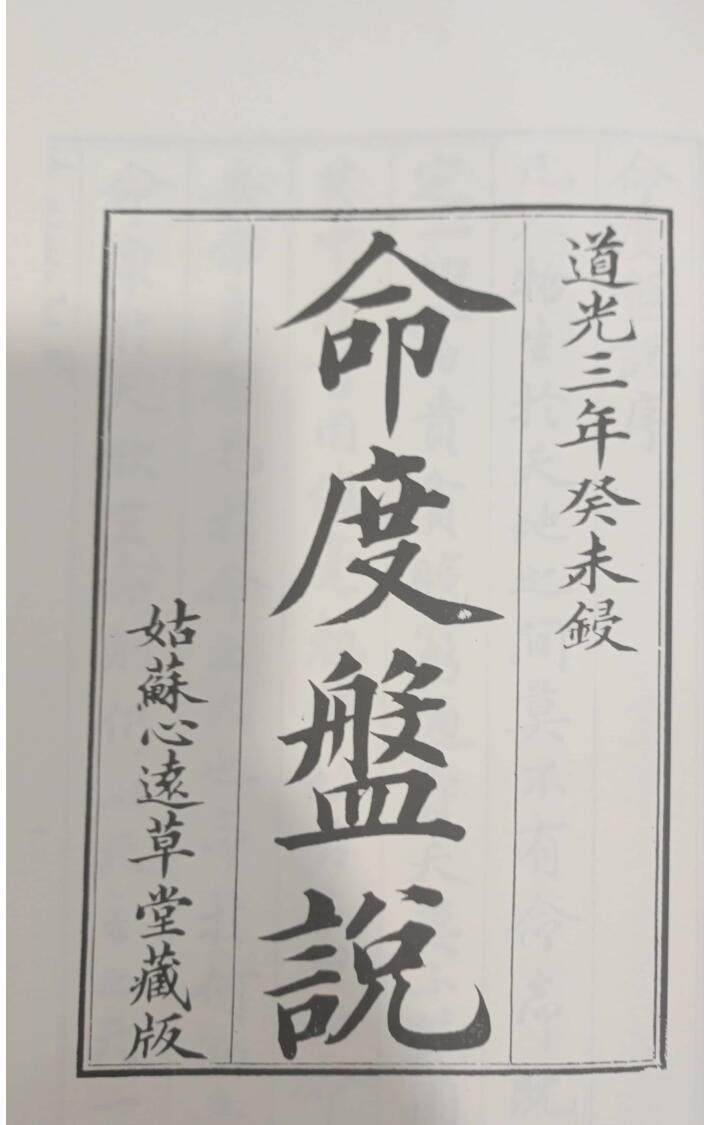 道光三年癸未鋟
命度盤說
姑蘇心遠草堂藏版